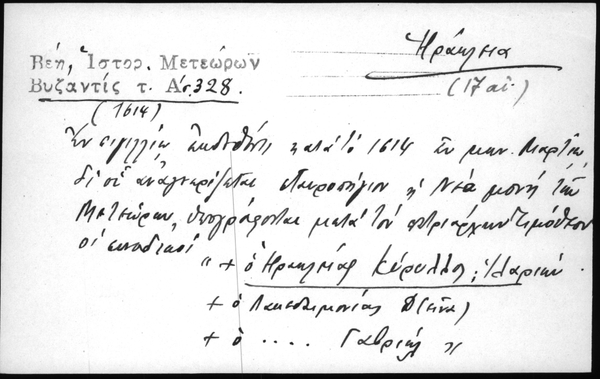 Ἡράκλεια
Βέη, Ἱστορ. Μετεώρων
(17 αἰ.)
Βυζαντίς τ. Α΄ σ. 328.
(1614)
Ἐν σιγιλλίῳ ἐκδοθέντι κατὰ τὸ 1614 ἐν μην. Μαρτίῳ
δι' οὗ ἀναγνωρίζεται σταυροπήγιον ἡ Νέα μονὴ τῶν
Μετεώρων, ὑπογράφονται μετὰ τὸν πατριάρχην Τιμόθεον
οἱ συνοδικοί
" + ὁ Ἡρακλείας Κύριλλος,
+ ὁ Λακεδαιμονίας
+ ὁ .... Γαβριήλ "